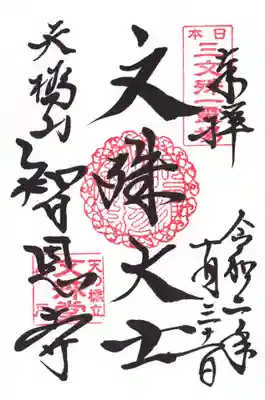 奉拝
日本
三文殊
令和二年
十月三十一日
文殊大士
天橋山
智恩寺
天の橋立
文殊堂